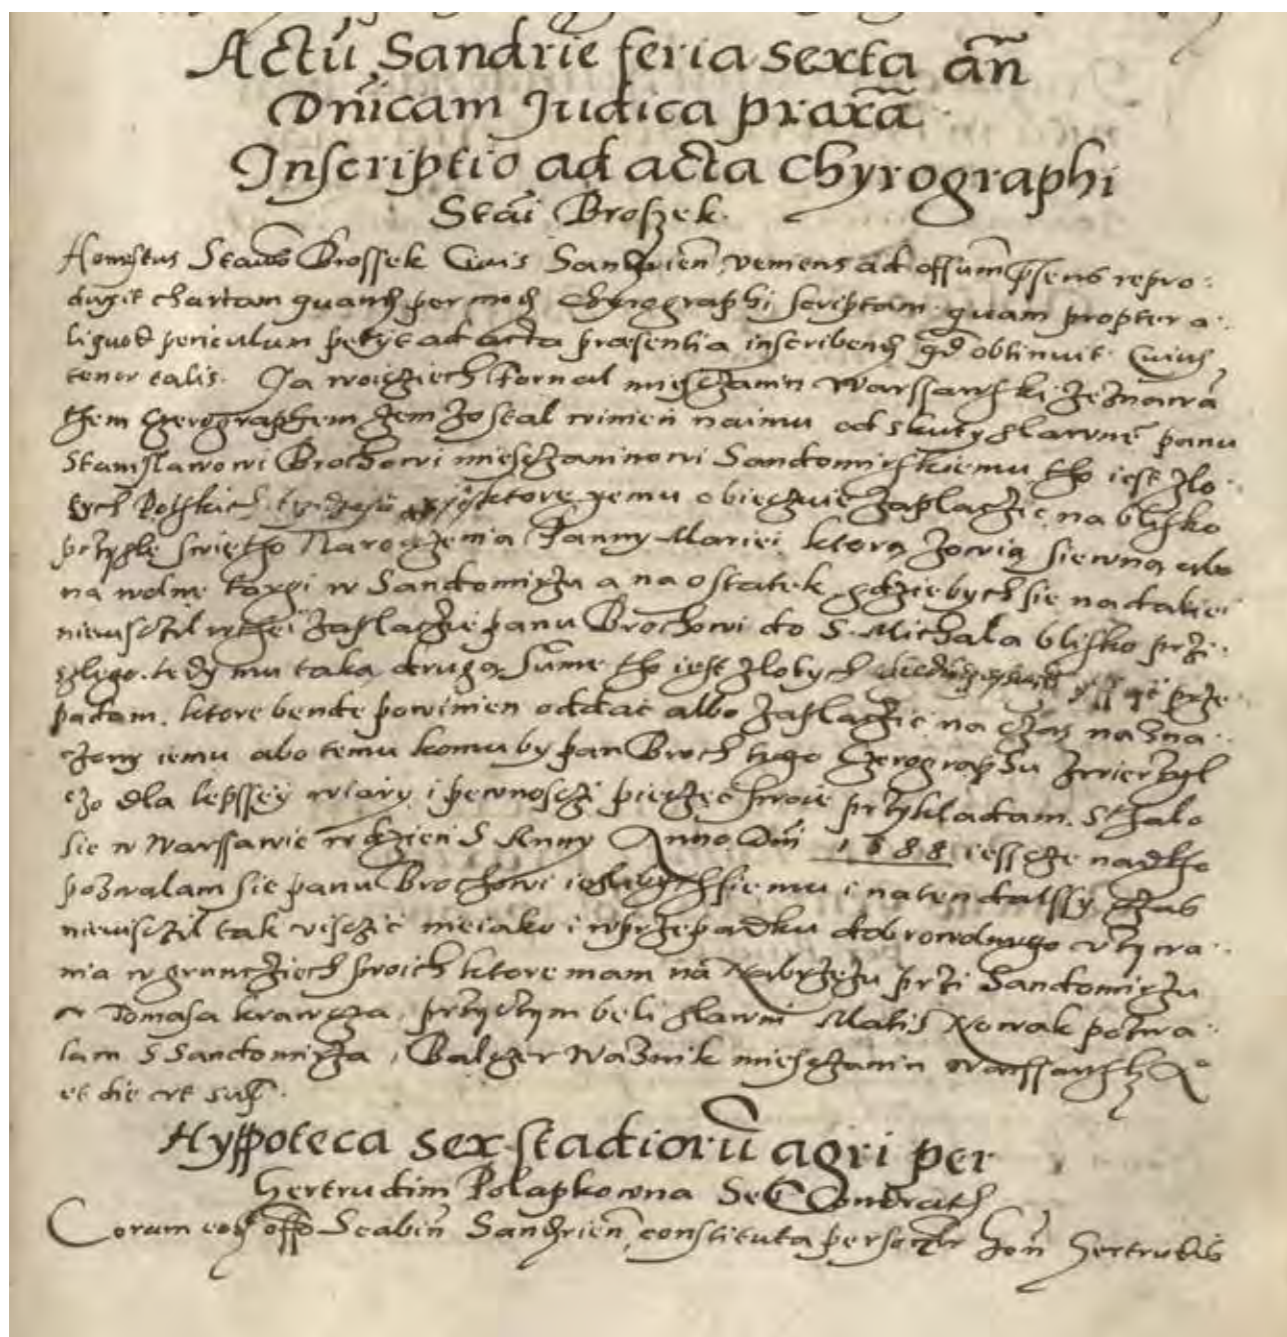 Actũ Sandriẽ feria sexta añ
Dnicam Judica praxã
Inscriptio ad acta Chyrographi
Stãi Broszek.
Honestus Brossek Civis Sandrien̄ veniens ad offium pręsens repro:
duxit chartam quand per mod Chyrographi scriptam quam propter a:
liquod periculum petyt ad acta præsentia inscribend qd obtinuit. Cuius
tenor talis. Ja woicziech Fornal miesczanin Warssawski zeznawã
them Czerographem zem zostal winien naimu od skuty slawnẽ panu
Stanislawowi Brochowi miesczaninowi Sandomirskiemu tho iest zlo
tych Polskich ktore yemu obieczuie zaplaczic na blisko
przyszlę swiętho Narodzenia Panny Mariei ktorą zowią siewną albo
na wolne targi w Sandomirzu a na ostatek gdziebych sie na dalei
niewisczil w thei zaplaczie panu Brochowi do S. Michala blisko przi:
szlego. tedy mu taka druga sũme tho iest zlotych prze
padam. ktore bende powinien oddac albo zaplaczic na czas nazna:
czony iemu abo temu komu by pan Broch tego Czerographu zwierzyl
czo dla lepssey wiary i pewnosczi pieczęc swoie przykladam. Stzalo
sie w Warssawie w dzien S Anny Anno Dñi 1588 iescze nadtho
pozwalam sie panu Brochowi ieslibych sie mu i na ten dalssy czas
niewisczil tak visczic nieiako i w przepadku dobrowolnego vzywa:
nia w grunciech swoich ktore mam nã Nabrzezu przi Sandomirzu
v Tomasa krawcza, przytym beli slawni Matis Nowak
S Sandomirza, Balczer Waznik miesczanin
et die vt sup̃.
Hyppoteca sex stadiorũ agri per
Hertrudim Polapkowna
Coram eod offo Scabin̄ Sandrien̄, constituta hon̄ Hertrudis